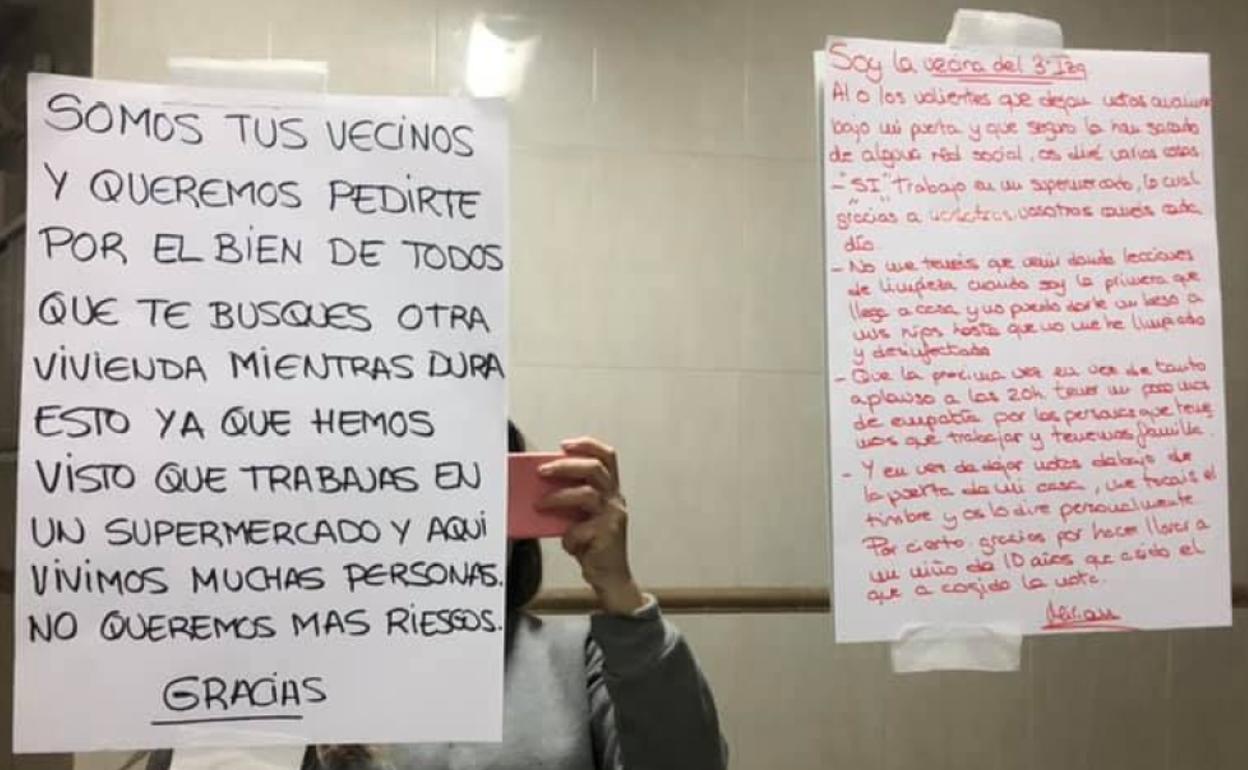 SOMOS TUS VECINOS
Y QUEREMOS PEDIRTE
POR EL BIEN DE TODOS
QUE TE BUSQUES OTRA
VIVIENDA MIENTRAS DURA
ESTO YA QUE HEMOS
VISTO QUE TRABAJAS EN
UN SUPERMERCADO Y AQUI
VIVIMOS MUCHAS PERSONAS.
NO QUEREMOS MAS RIESGOS.
GRACIAS
Soy la vecina del 3º Izq
Al o los valientes que dejan notas
bajo mi puerta y que seguro la han sacado
de alguna red social, os diré varias cosas
- "SI" Trabajo en un supermercado, lo cual
gracias a vosotros coméis cada
día
- No me tenéis que venir dando lecciones
de limpieza cuando soy la primera que
llega a casa y no puedo darle un beso a
mis hijos hasta que no me he limpiado
y desinfectado
- Que la proxima vez en vez de tanto
aplauso a las 20h tener un poco mas
de empatía por las personas que tene
mos que trabajar y tenemos familia.
- Y en vez de dejar notas debajo de
la puerta de mi casa, me tocais el
timbre y os lo dire personalmente
Por cierto, gracias por hacer llorar a
un niño de 10 años que a sido el
que a cogido la nota.
Miriam